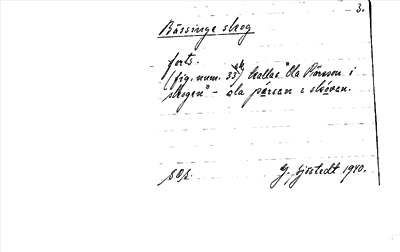 3.
Bässinge skog
forts.
(fig. num. 33) kallas "Ola Pärsson i
skogen" - ola pärsan i skövan.
G. Sjöstedt 1940.